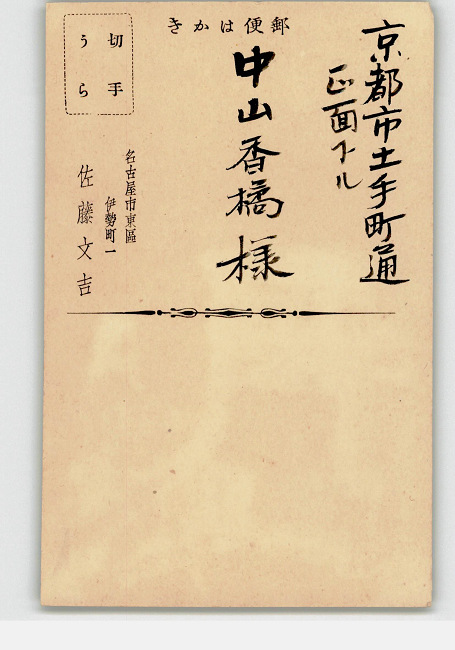 郵便はかき
京都市土手町通
正面下ル
中山香橘様
切手
うら
名古屋市東區
伊勢町一
佐藤文吉